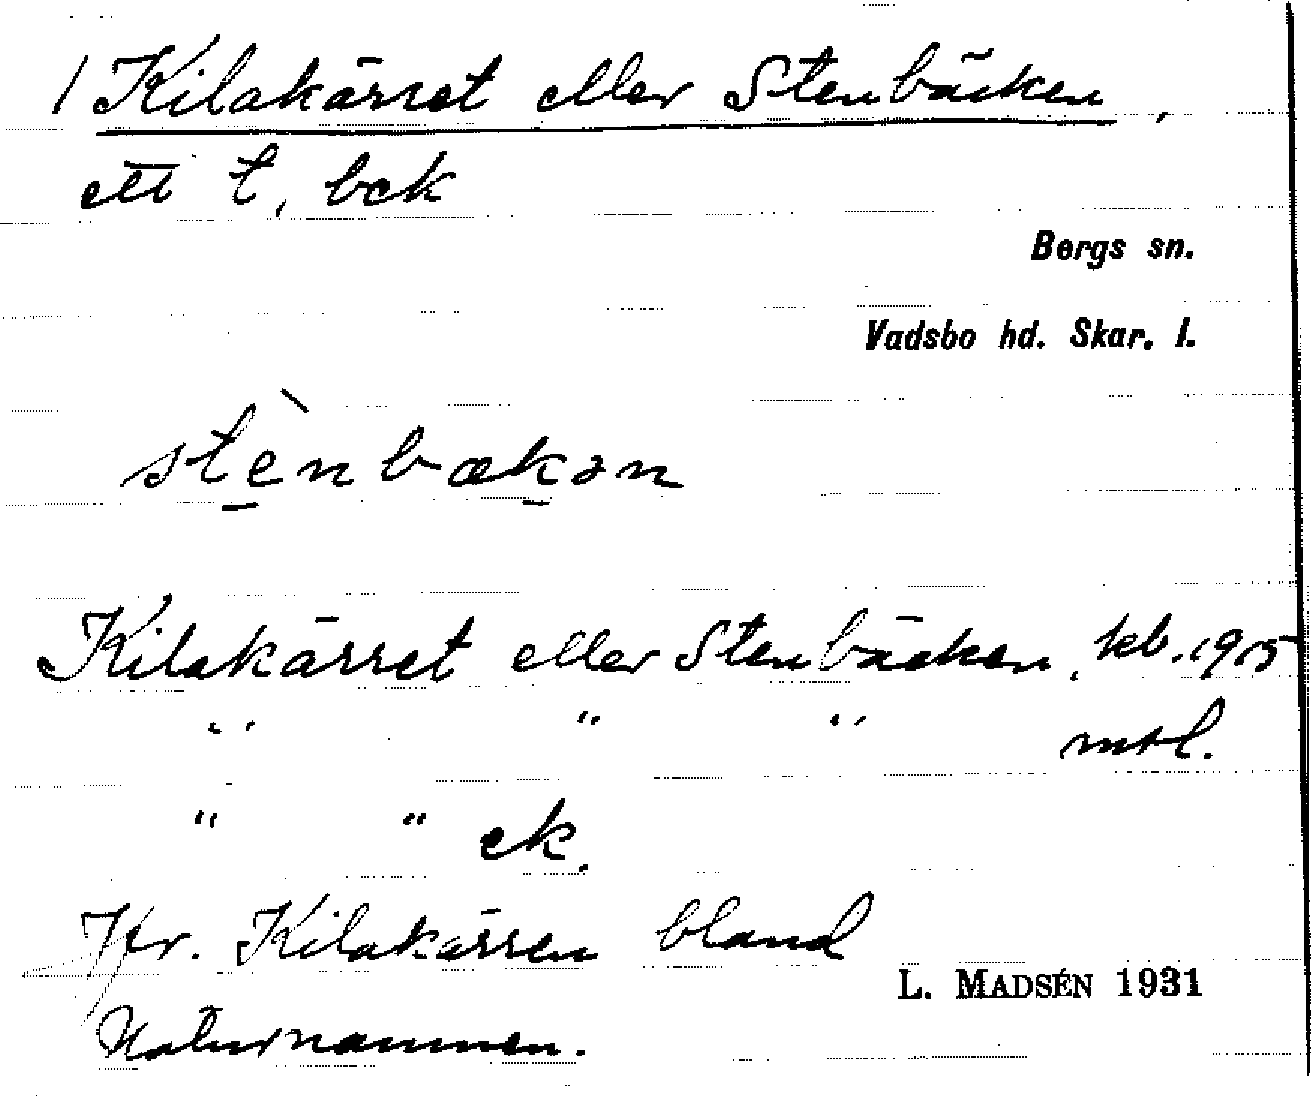 1 Kilakärret eller Stenbäcken,
ett t, bck
Bergs sn.
Vadsbo hd. Skar. l.
stènbækən
Kilakärret eller Stenbäcken, kb. 1915
" " " mtl.
" " ek.
Jfr. Kilakärren bland
L. MADSÉN 1931
Naturnamnen.